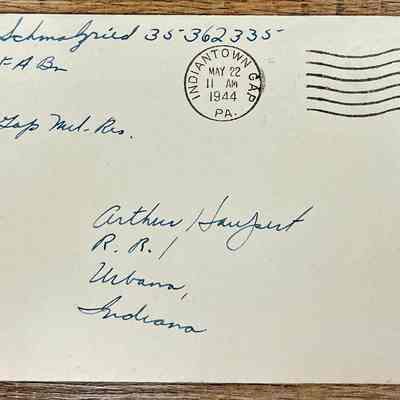 Schmalzried 35-362335
F A Bn
Gap Mil-Res.
INDIANTOWN GAP
MAY 22
11 AM
1944
PA.
Arthur Haupert
R. R. 1
Urbana,
Indiana